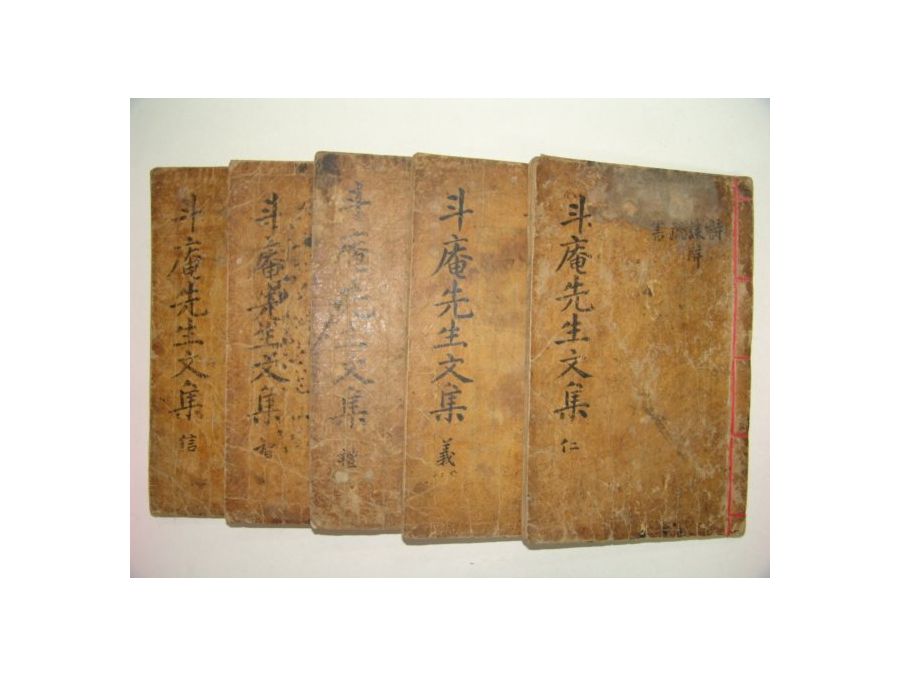 斗庵先生文集 仁
詩
疎
辭
書
斗庵先生文集 義
斗庵先生文集 禮
斗庵先生文集 智
斗庵先生文集 信